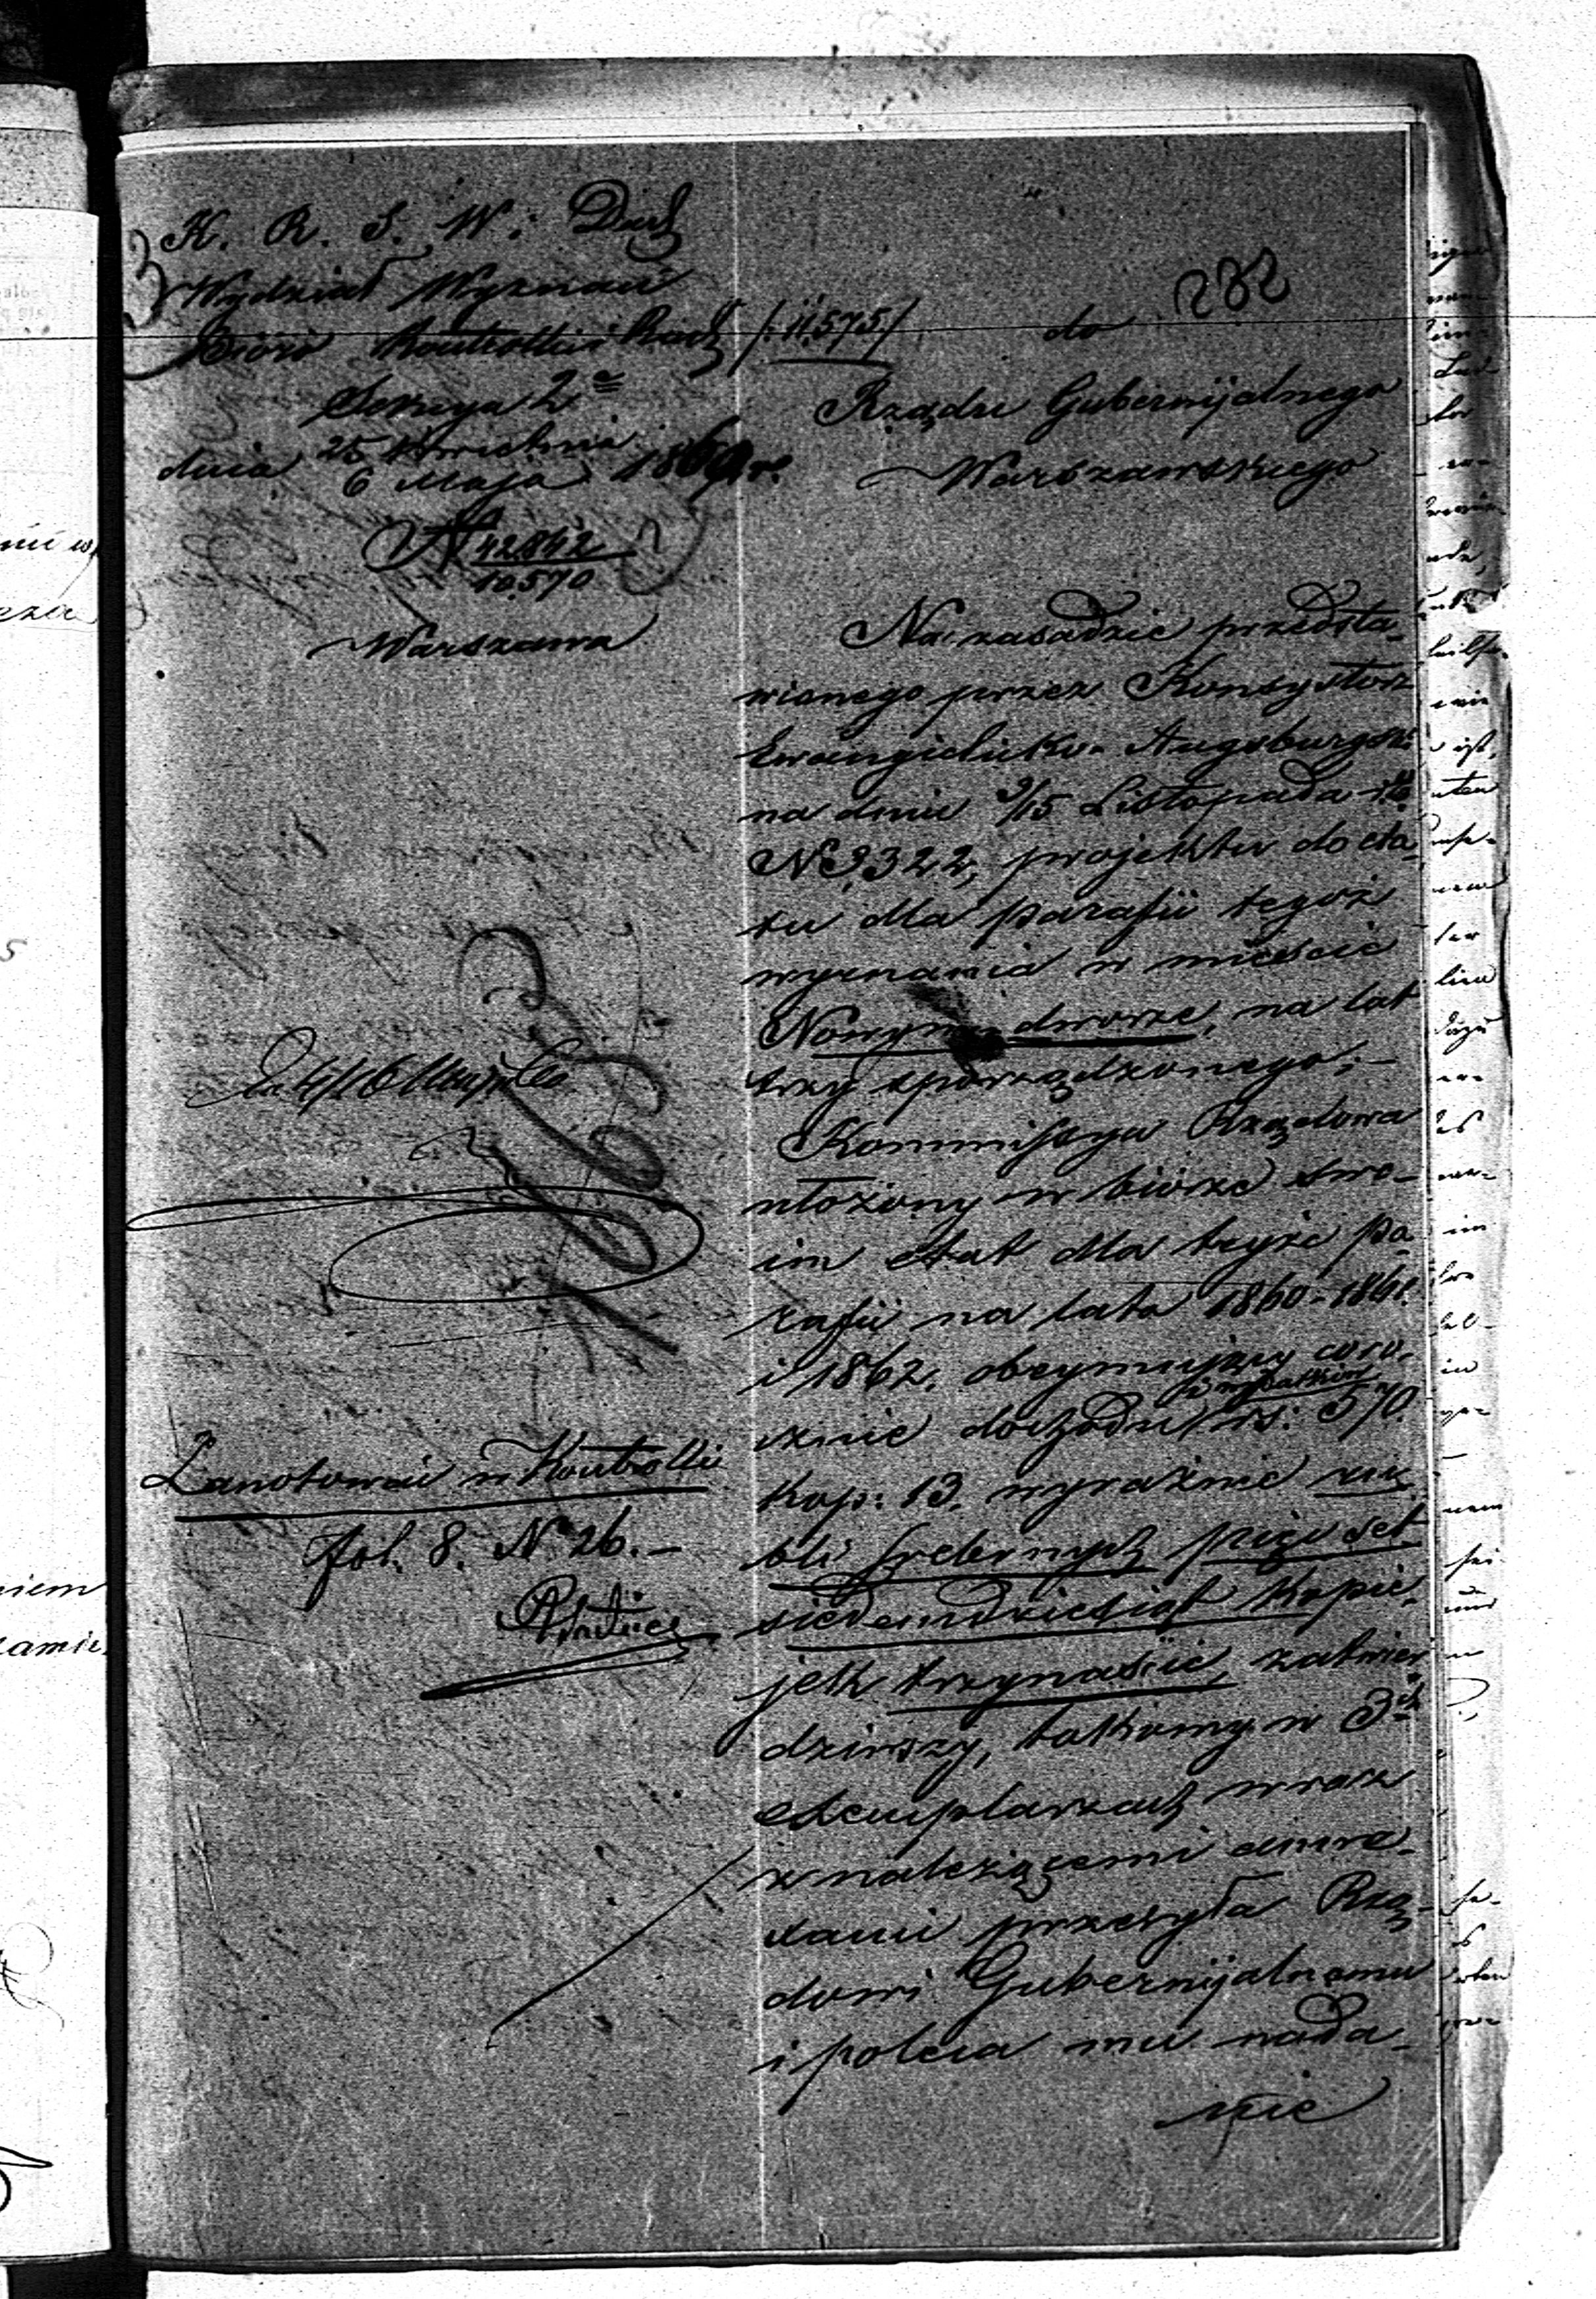 K. R. S. W. i Duch
Wydział Wyznań
Bióro Kontrolli i Rach /:11,575:/
Sekcya 2ª
dnia 25 Kwietnia
6 Maja 1860 r.
N 42842
10,570
Warszawa
282
do
Rządu Gubernijalnego
Warszawskiego
Na zasadzie przedsta-
wionego przez Konsystorz
Ewangielicko-Augsburgski
na dniu 3/15 Listopada
N 9,322, projektu do eta-
tu dla parafii tegoż
wyznania w mieście
Nowym dworze, na lat
trzy sporządzonego;—
Kommissya Rządowa
ułożony w biórze swo-
im etat dla tejże pa-
rafii na lata 1860-1861
i 1862. obejmujący coro-
i wydatków
cznie dochodu rs: 570.
kop: 13. wyraźnie ru-
bli srebrnych pięćset
siedemdziesiąt kopie-
jek trzynaście, zatwier-
dziwszy, takowy w 3ch
exemplarzach wraz
z należącemi annex-
xami przesyła Rzą-
dowi Gubernijalnemu
i poleca mu nada-
nie
Zanotować w Kontrolli
fol. 8. N 26.—